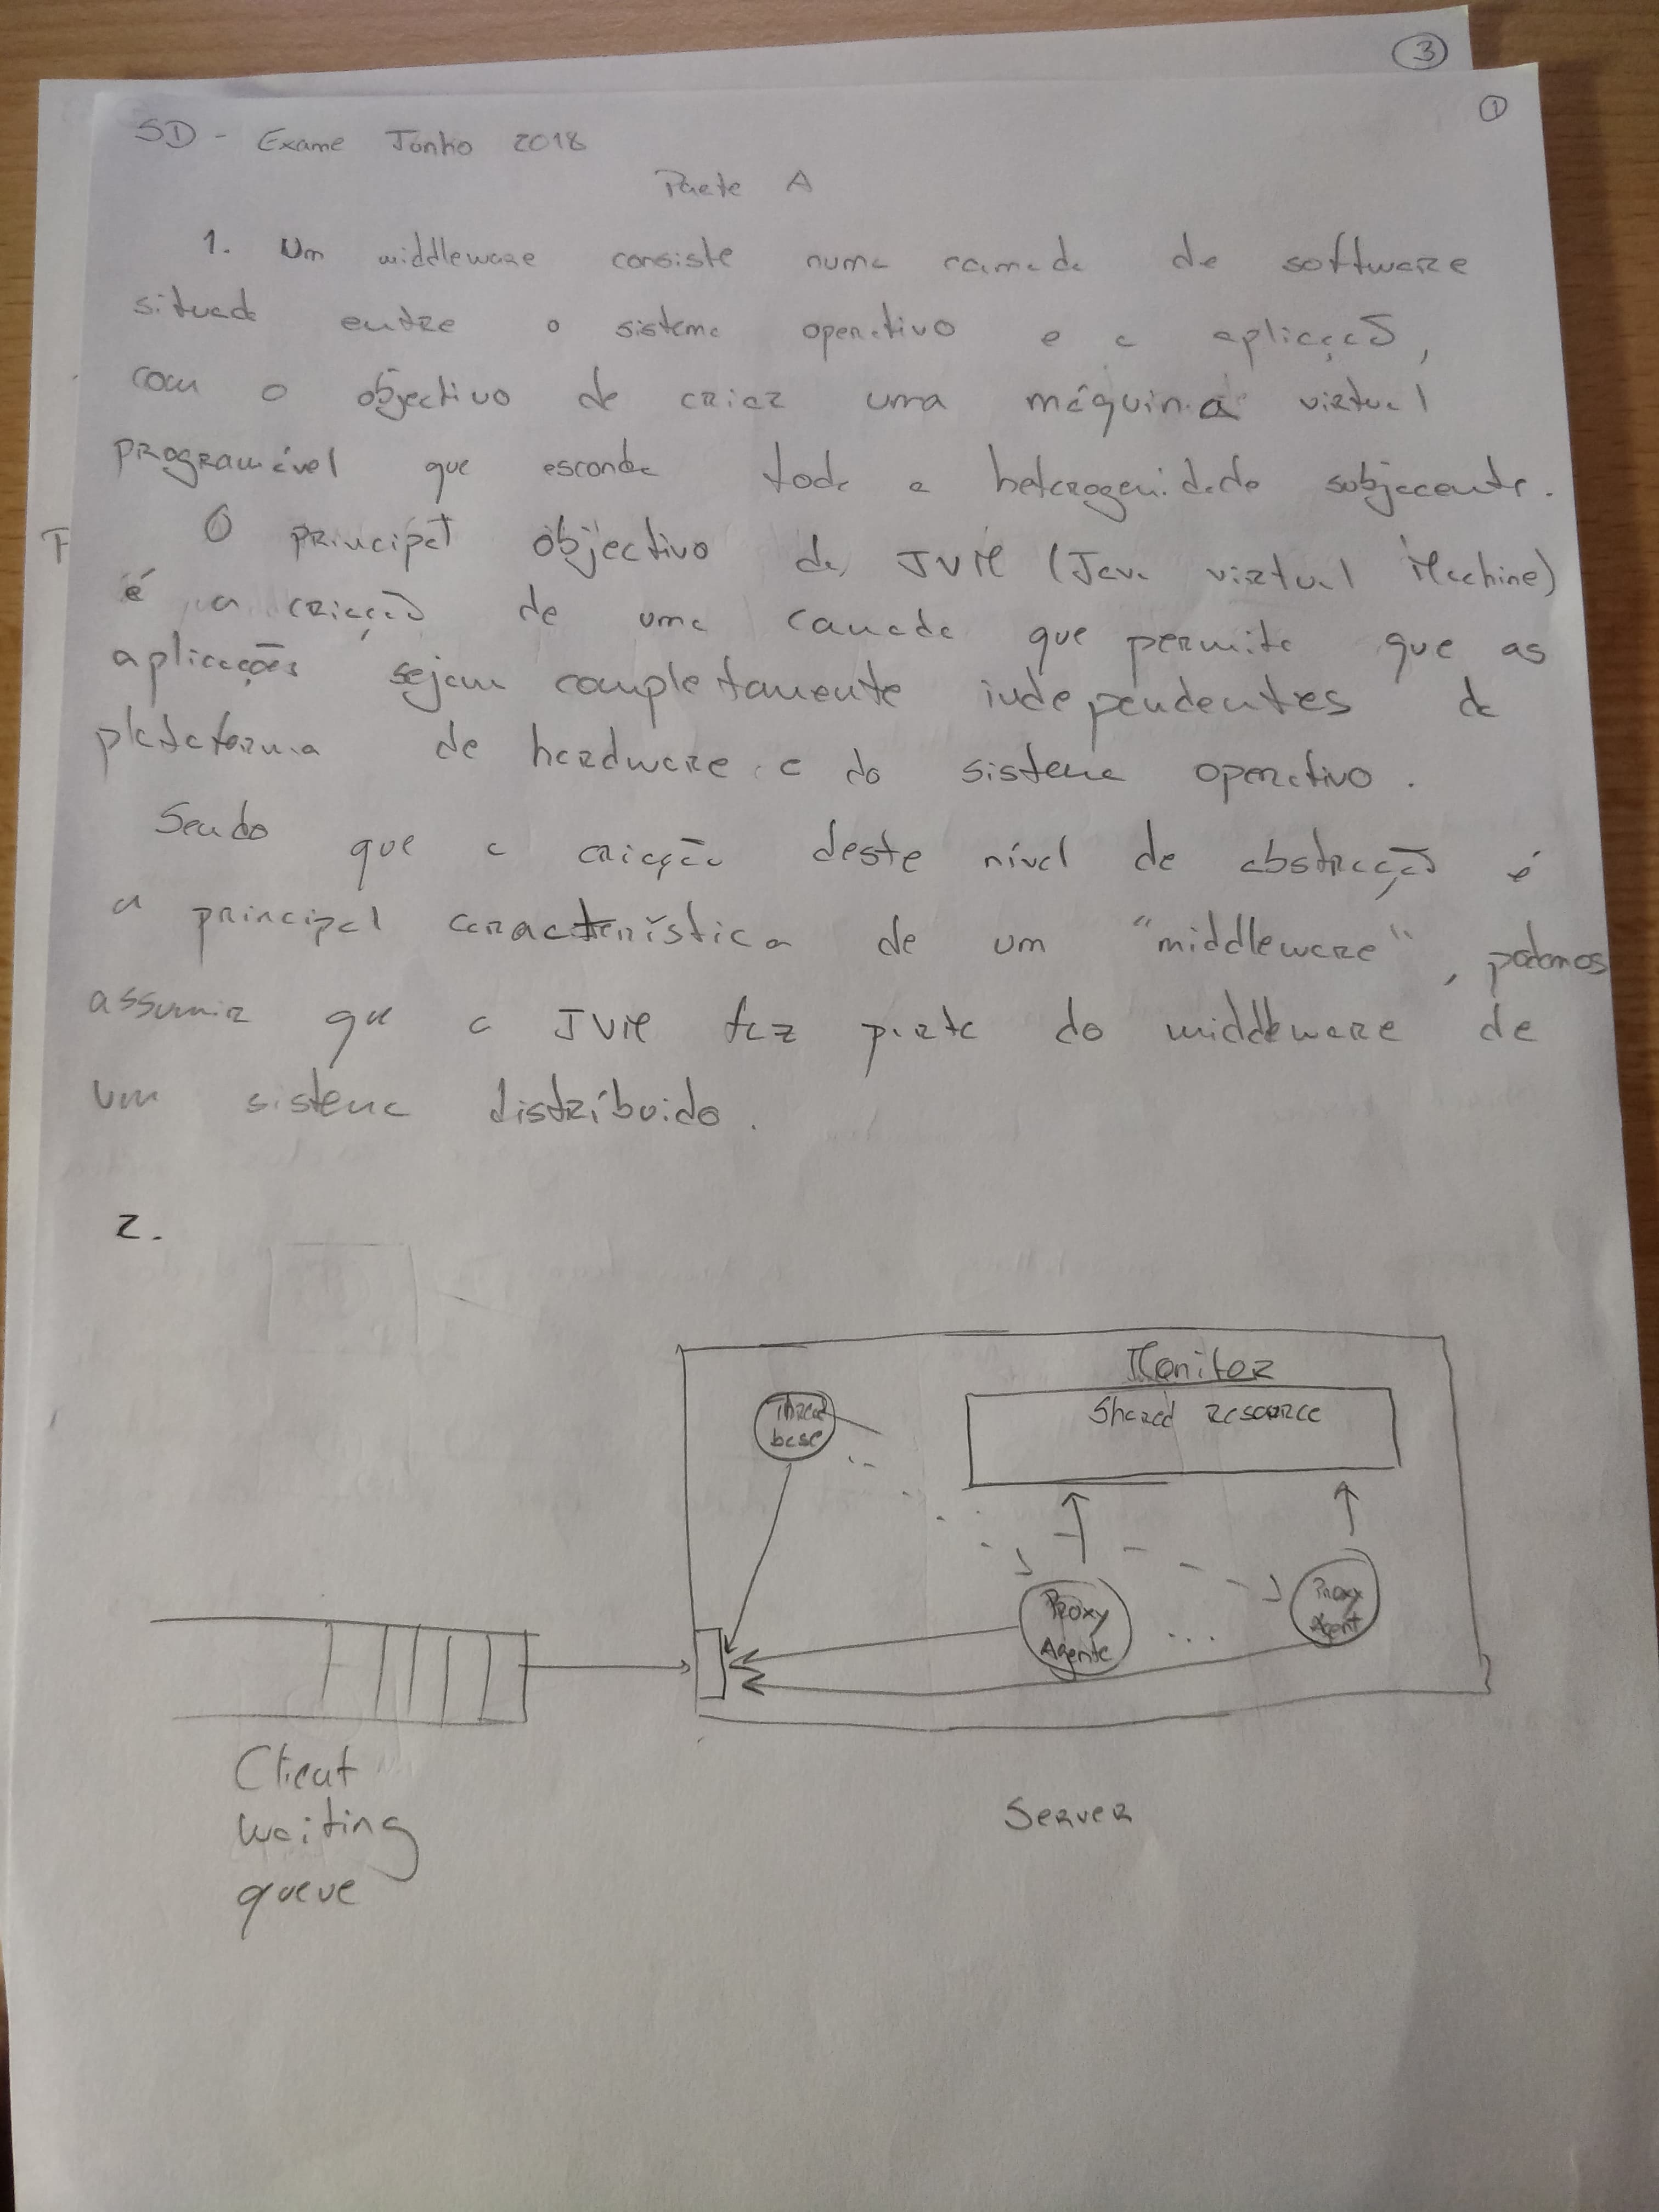 3
1
SD - Exame Junho 2018
Parte A
1. Um middleware consiste numa camada de software
situada entre o sistema operativo e a aplicação,
com o objectivo de criar uma máquina virtual
programável que esconda toda a heterogenidade subjacente.
O principal objectivo da JVM (Java virtual Machine)
é a criação de uma camada que permite que as
aplicações sejam completamente independentes da
plataforma de hardware e do sistema operativo.
Sendo que a criação deste nível de abstracção é
a principal característica de um "middleware", podemos
assumir que a JVM faz parte do middleware de
um sistema distribuido.
2.
Monitor
Shared resource
Thread
base
Proxy
Agente
...
Proxy
Agent
Client
waiting
queue
Server